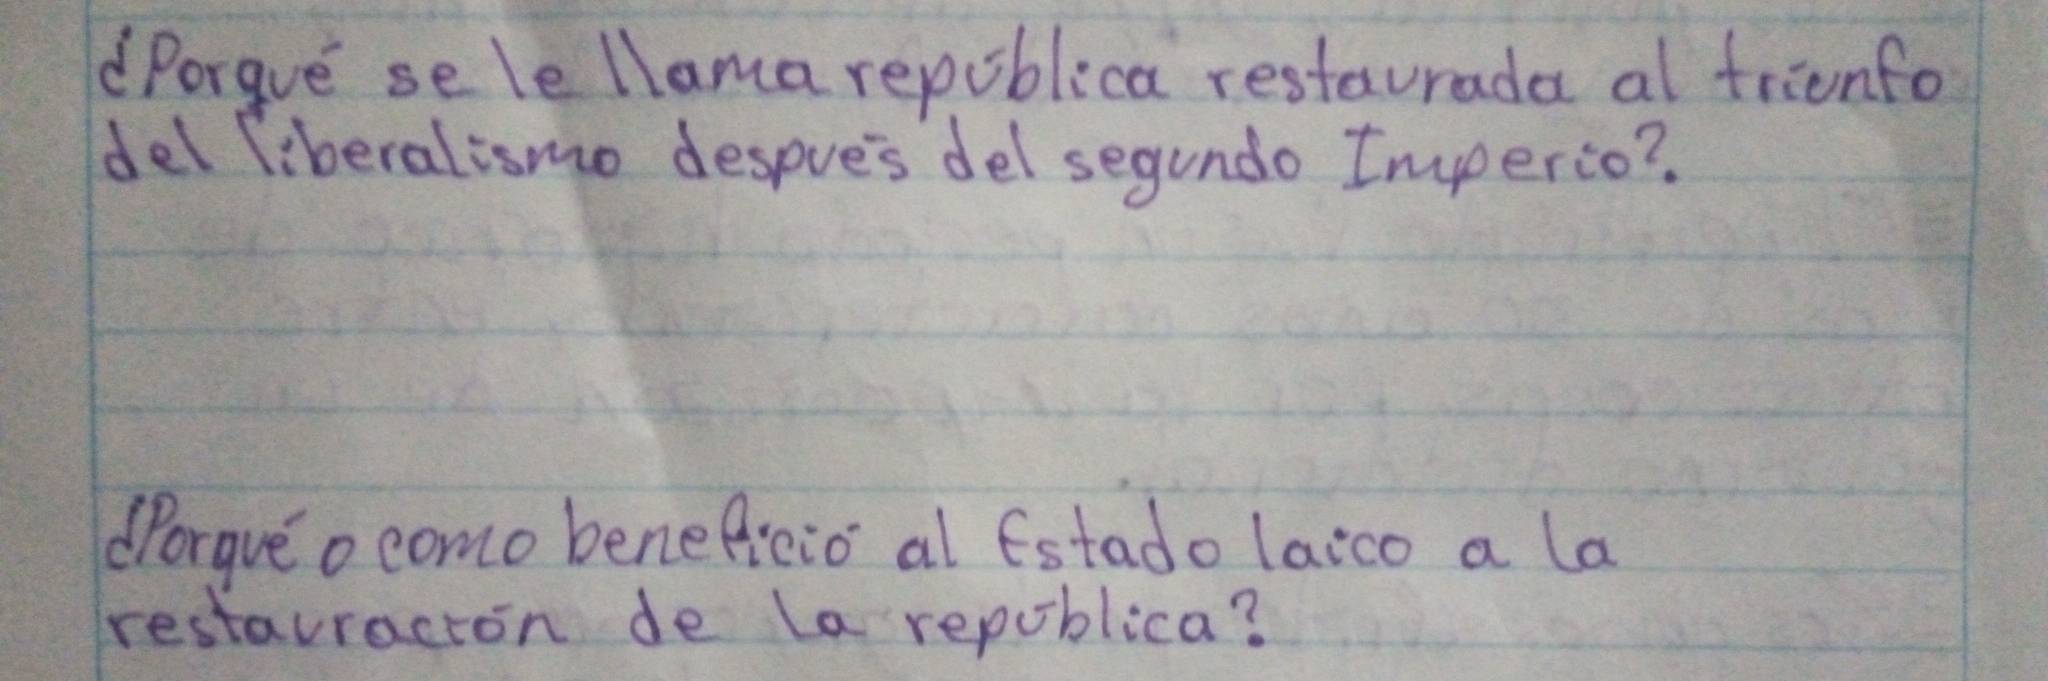 ¿Porqué se le llama república restaurada al triunfo
del liberalismo después del segundo Imperio?.
¿Porqué o como benefició al Estado laico a la
restauración de la república?